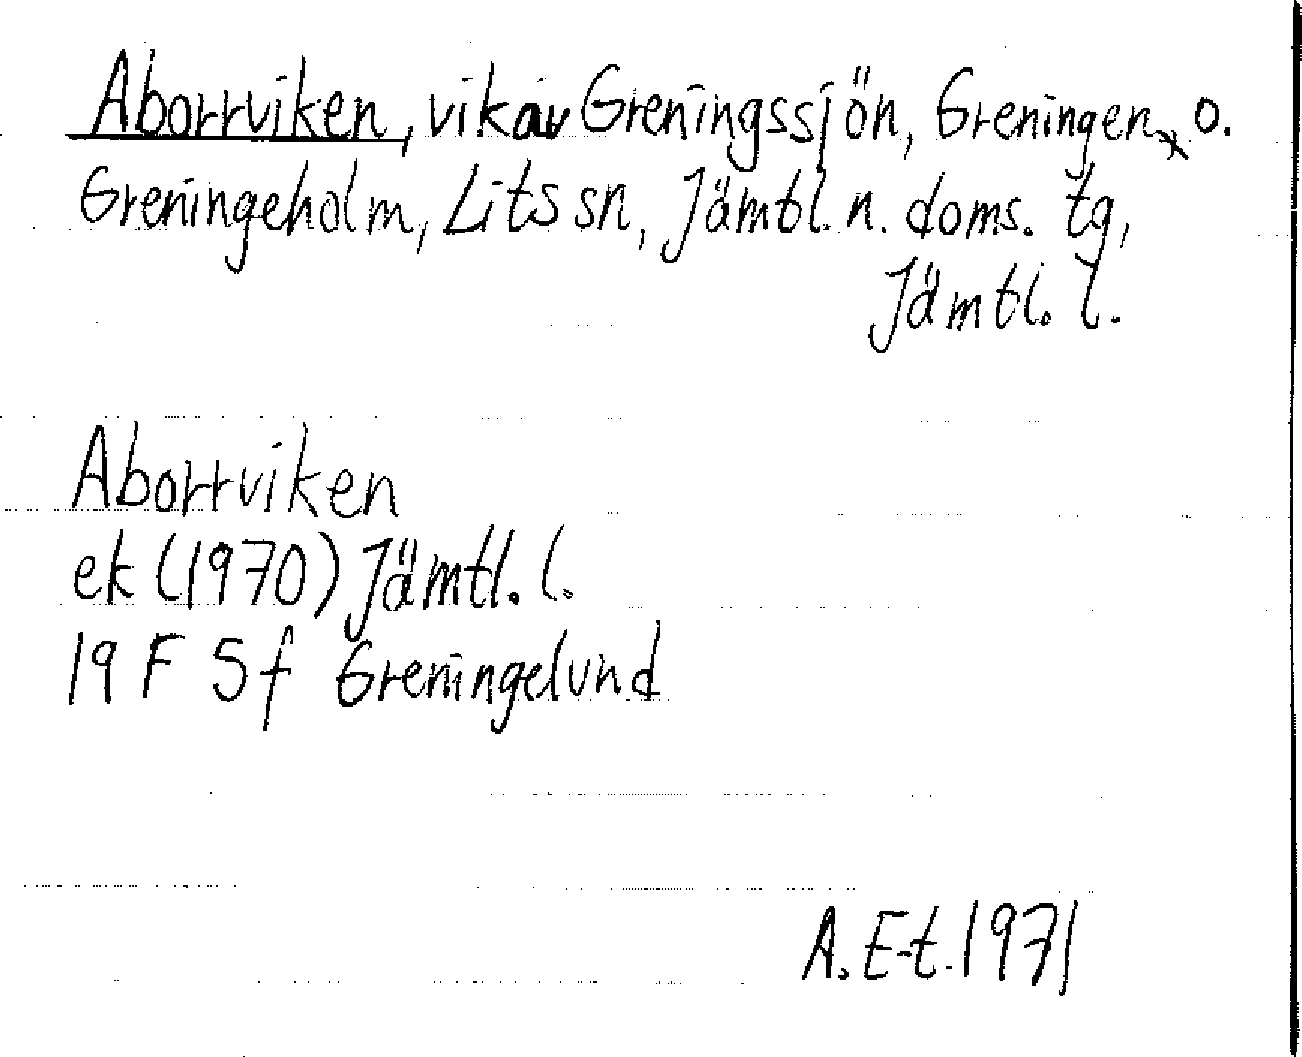 Aborrviken, vik av Greningssjön, Greningen, o.
Greningeholm, Lits sn, Jämtl. n. doms. tg,
Jämtl. l.
Aborrviken
ek (1970) Jämtl. l.
19 F 5 f Greningelund
A. E-t. 1971